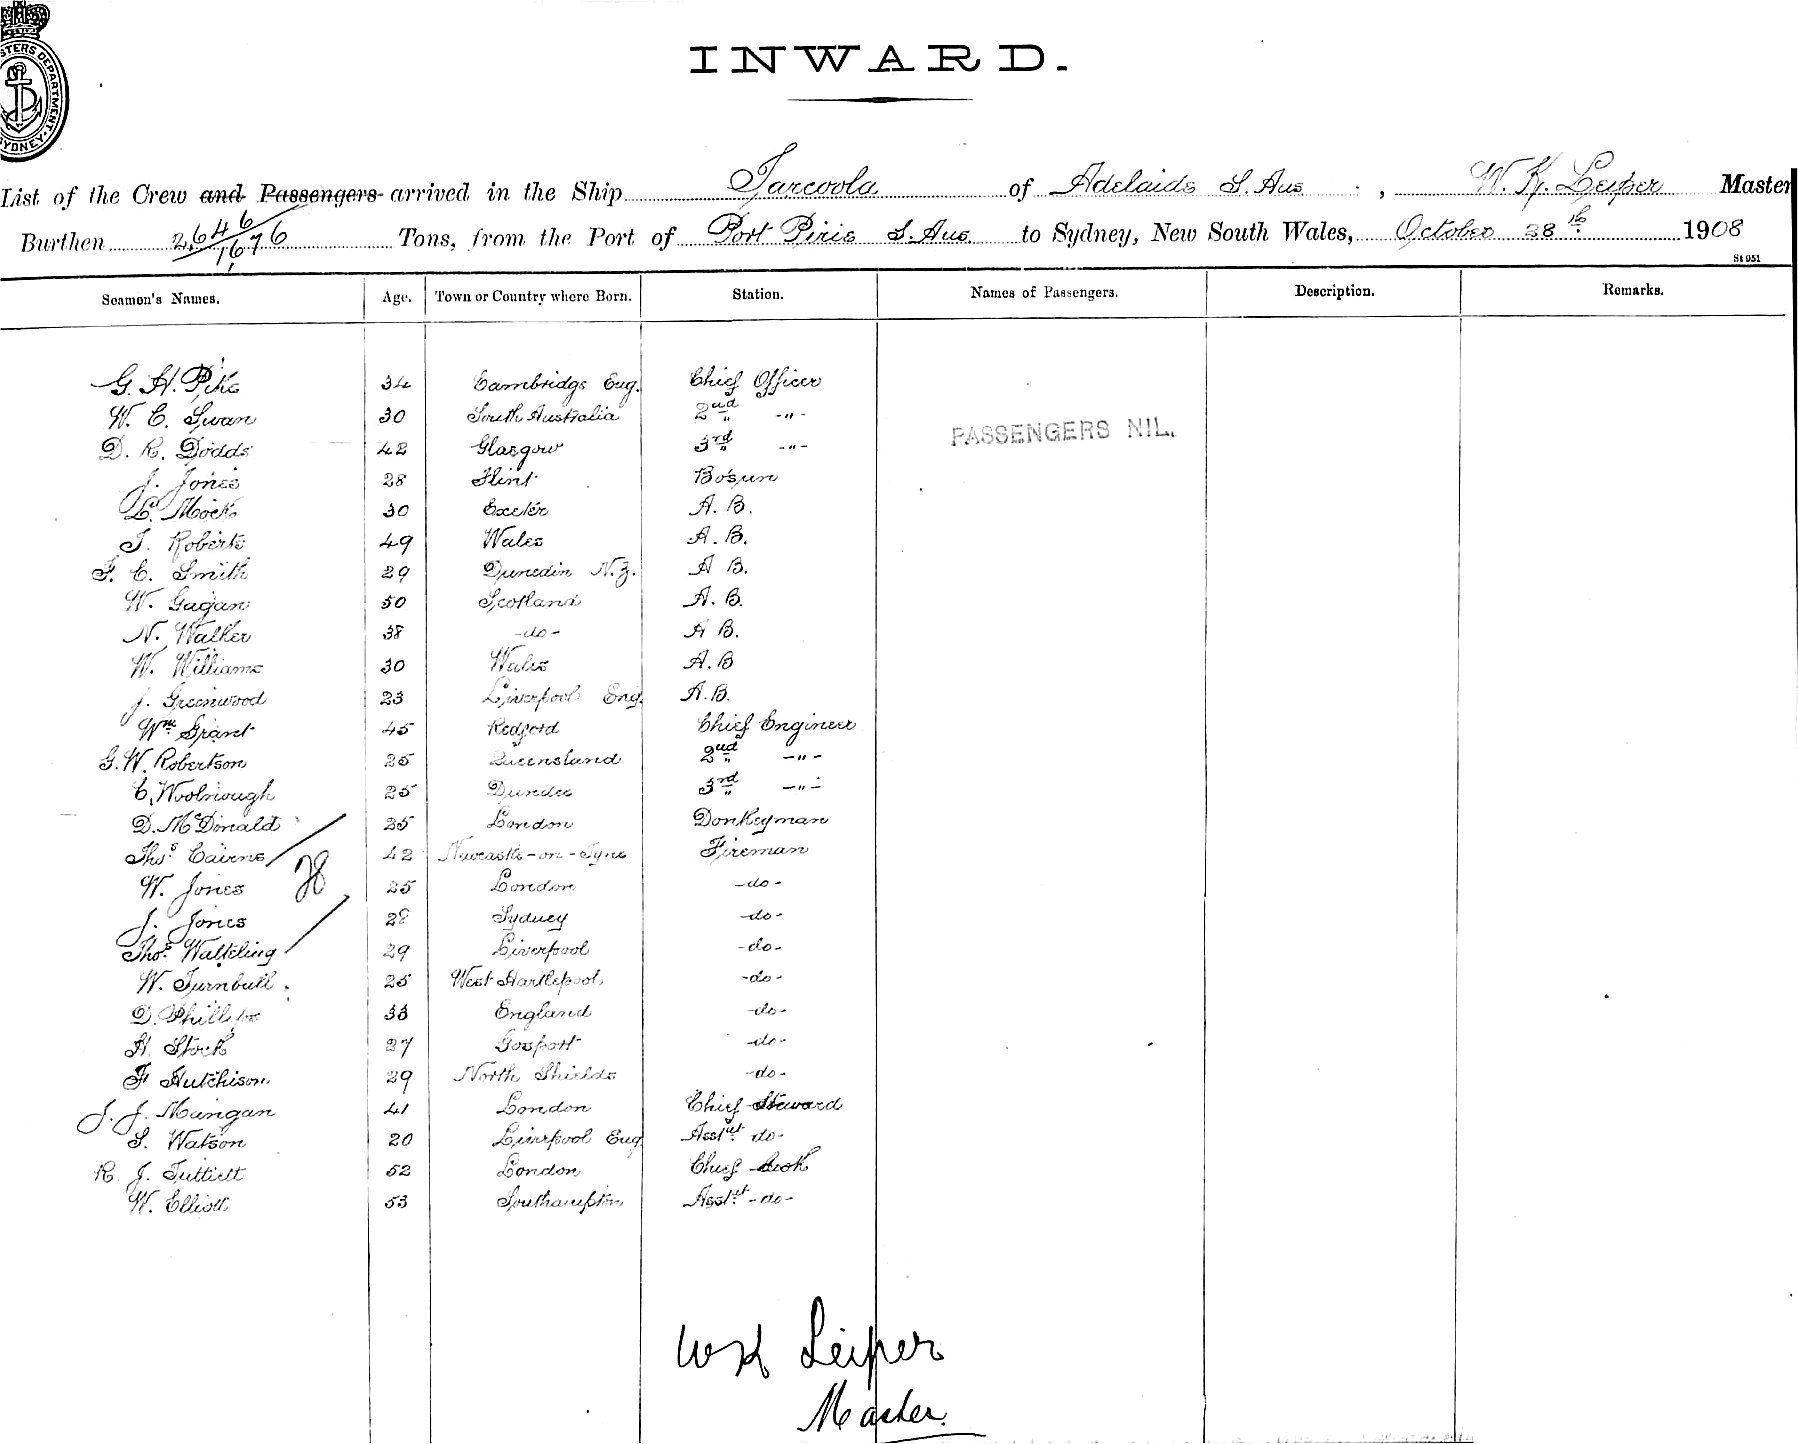 STERS DEPARTMENT. SYDNEY
INWARD.
List of the Crew and Passengers arrived in the Ship Tarcoola of Adelaide S. Aus , W. K. Leiper Master
Burthen 2,646/1,676 Tons, from the Port of Port Pirie S. Aus. to Sydney, New South Wales, October 28th 1908
St 951
Seamen's Names. Age. Town or Country where Born. Station. Names of Passengers. Description. Remarks.
G. H. Pike 34 Cambridge Eng. Chief Officer
W. E. Swan 30 South Australia 2nd -"-
PASSENGERS NIL.
D. R. Dodds 42 Glasgow 3rd -"-
J. Jones 28 Flint Bosun
L. Mock 30 Exeter A. B.
T. Roberts 49 Wales A. B.
F. E. Smith 29 Dunedin N.Z. A B.
W. Gagan 50 Scotland A. B.
N. Walker 38 -do- A B.
W. Williams 30 Wales A. B
J. Greenwood 23 Liverpool Eng. A.B.
Wm. Grant 45 Redford Chief Engineer
G. W. Robertson 25 Queensland 2nd -"-
C. Woolnough 25 Dundee 3rd -"-
D. McDonald 25 London Donkeyman
Thos. Cairns 42 Newcastle-on-Tyne Fireman
W. Jones 25 London -do-
J. Jones 28 Sydney -do-
Thos. Watteling 29 Liverpool -do-
W. Turnbull 25 West Hartlepool -do-
D. Phillips 33 England -do-
H. Stock 27 Gosport -do-
F Hutchison 29 North Shields -do-
J. J. Mangan 41 London Chief Steward
S. Watson 20 Liverpool Eng Asst. do-
R. J. Tuttiett 52 London Chief Cook
W. Elliott 53 Southampton Asst. -do-
WK Leiper
Master.